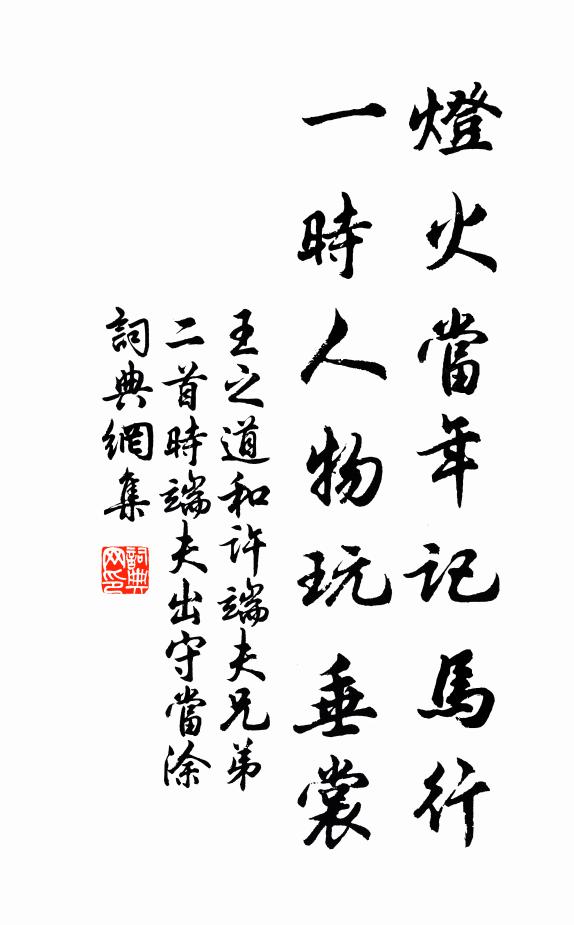 燈火當年記馬行
一時人物玩垂裳
王之道和許端夫兄弟
二首時端夫出守當涂
詞典網集
詞典网印